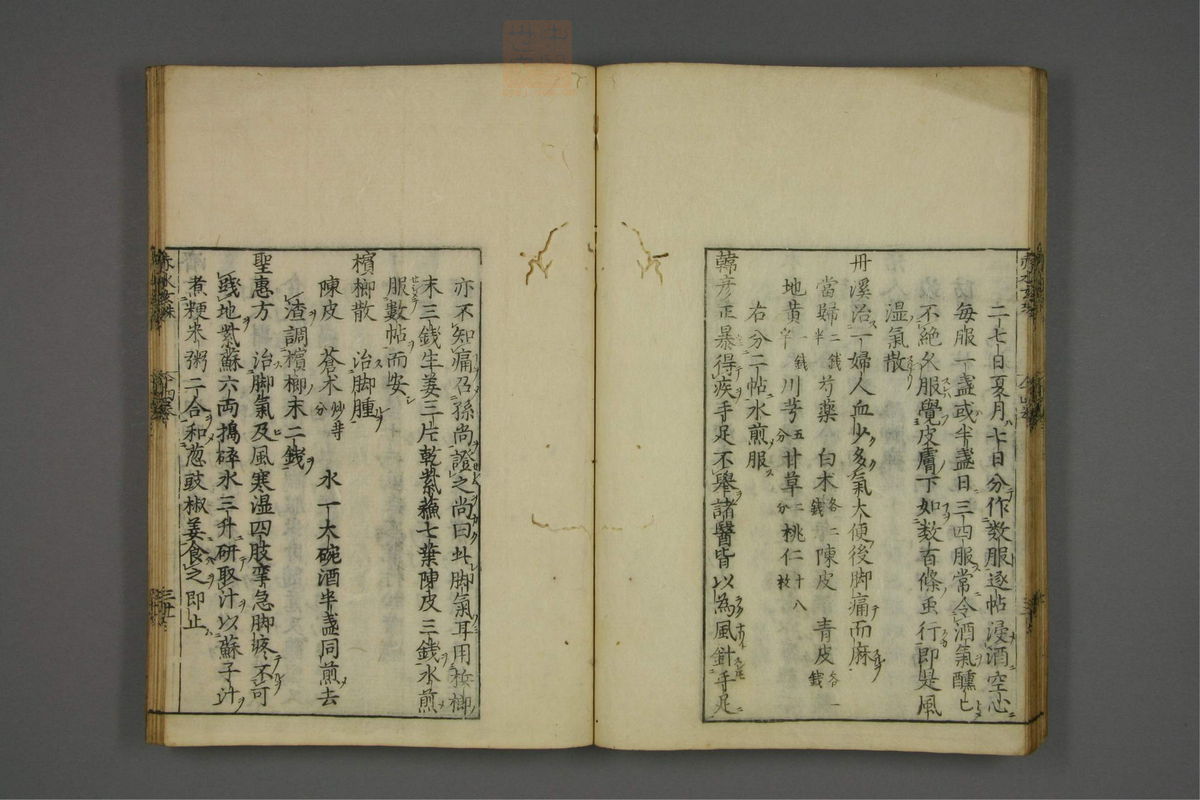 二七日夏月七日分作数服逐帖浸酒空心
毎服一盞或半盞日三四服常令酒氣醺々
不絶久服覺皮膚下如数百條虫行即是風
湿氣散
丹溪治一婦人血少多氣大便後脚痛而麻
當歸二錢半芍藥一錢白术各二錢陳皮青皮各一錢
地黄川芎五分甘草二分桃仁十八枚
右分二帖水煎服
韓彦正暴得疾手足不舉諸醫皆以為風針手足
亦不知痛乃孫尚證之尚曰此脚氣耳用檳榔
末三錢生姜三片乾紫蘓七葉陳皮三錢水煎
服數帖而安
檳榔散 治脚腫
陳皮 蒼术炒 等分 水一大碗酒半盞同煎去
渣調檳榔末二錢
聖惠方 治脚氣及風寒湿四肢攣急脚疼不可
踐地紫蘇六両搗碎水三升研取汁以蘇子汁
煮粳米粥二合和葱豉椒姜食之即止